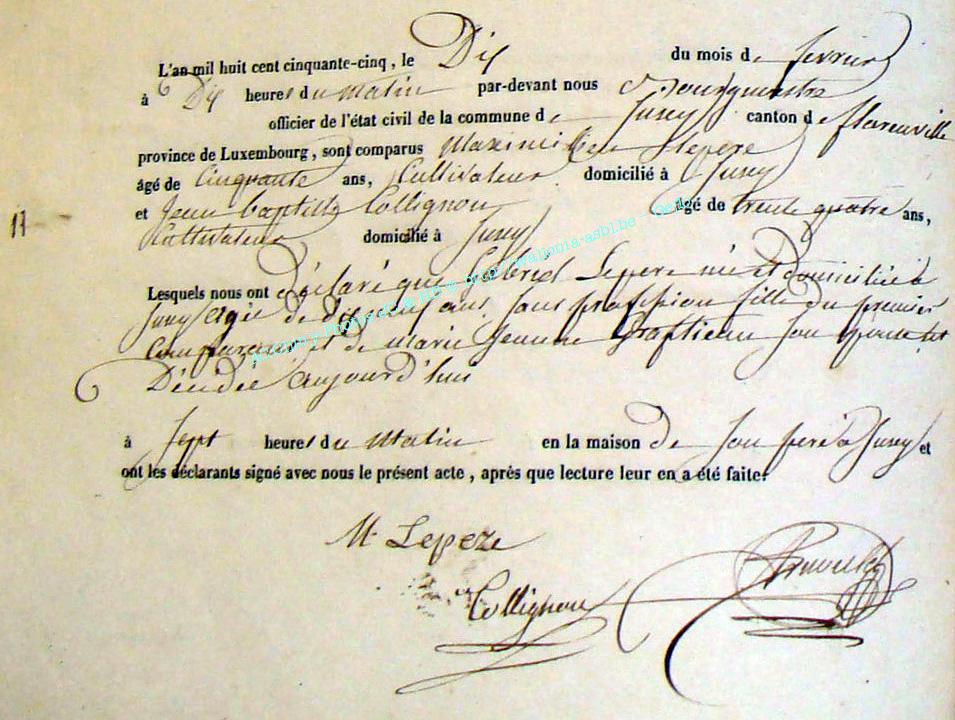 L'an mil huit cent cinquante-cinq, le Dix du mois de fevrier
à Dix heures du Matin par-devant nous Bourgmestre
officier de l'état civil de la commune de Jusey canton de florenville
province de Luxembourg, sont comparus Maximilien Lepere
âgé de Cinquante ans, Cultivateur domicilié à Jusey
et Jean Baptiste Collignon âgé de trente quatre ans,
11
Cultivateur domicilié à Jusey
Lesquels nous ont Déclaré que Lepere née et Domiciliée à
Jusey agée de dix neuf ans, sans profession fille du premier
Comparant et de Marie Jeanne son épouse est
Décédée aujourd'hui
à sept heures du Matin en la maison de son pere à Jusey et
ont les déclarants signé avec nous le présent acte, après que lecture leur en a été faite.
M. Lepeze
Collignon